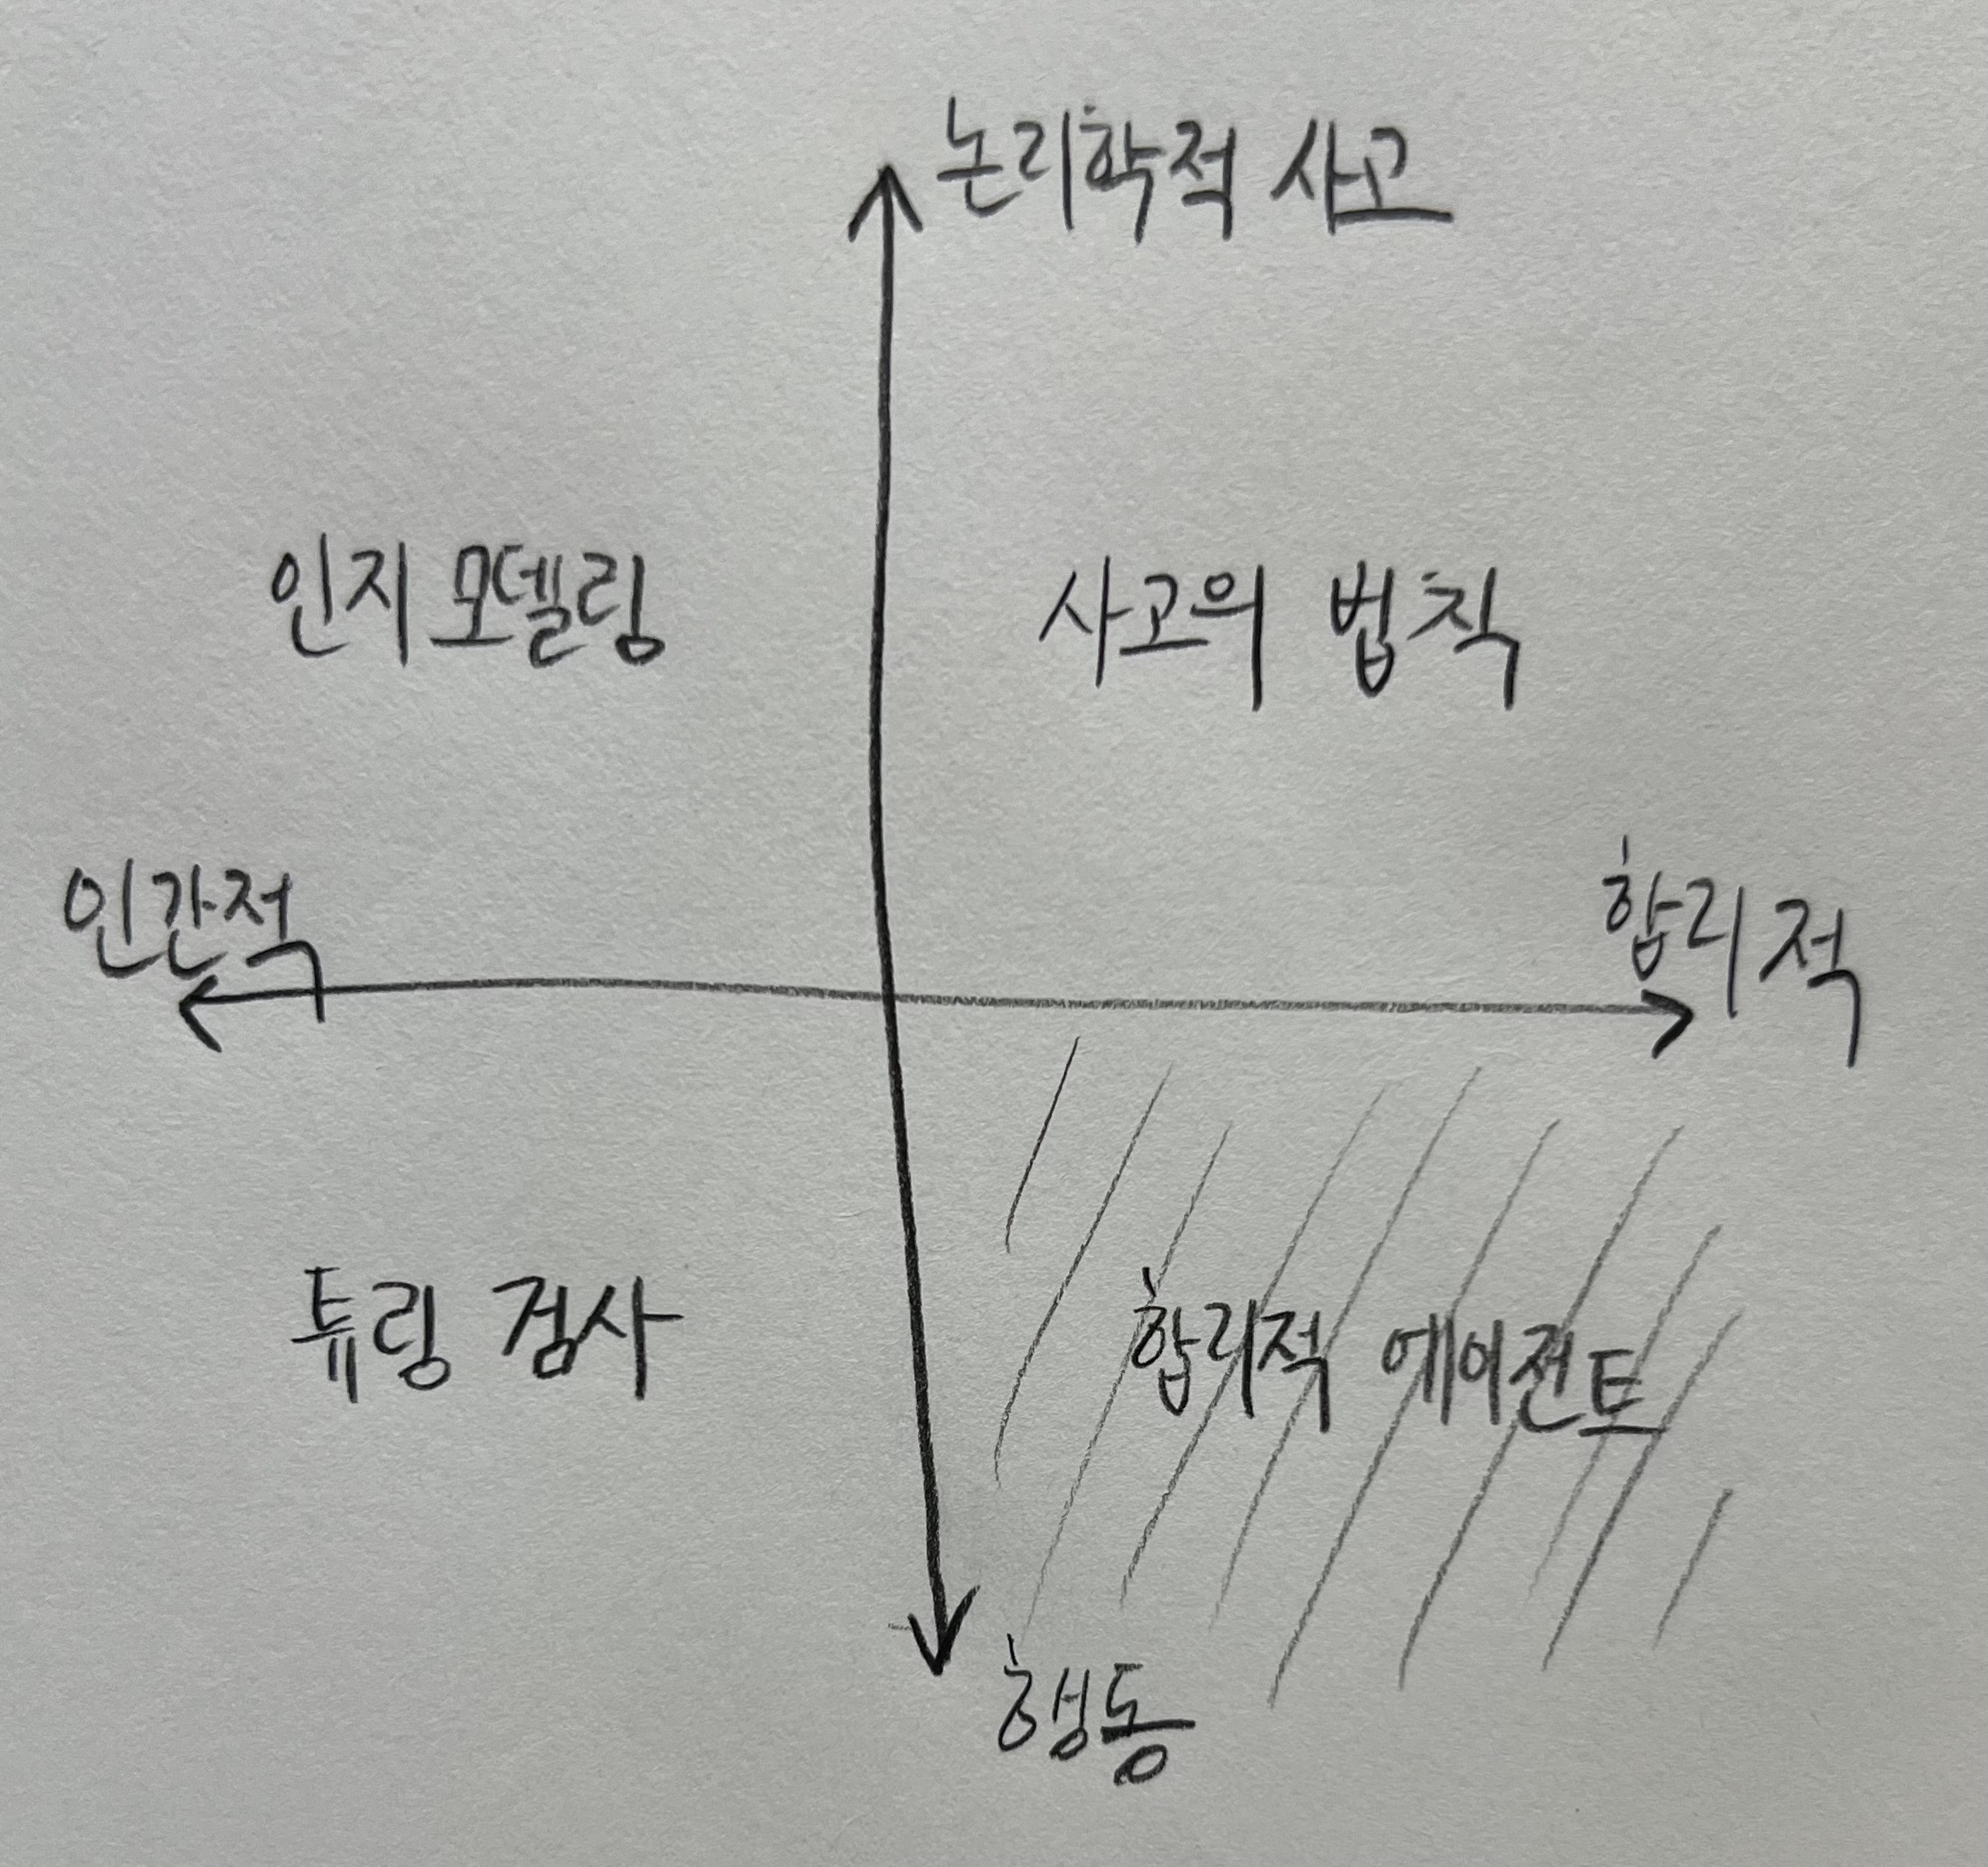 논리학적 사고
인지 모델링
사고의 법칙
인간적
합리적
튜링 검사
합리적 에이전트
행동